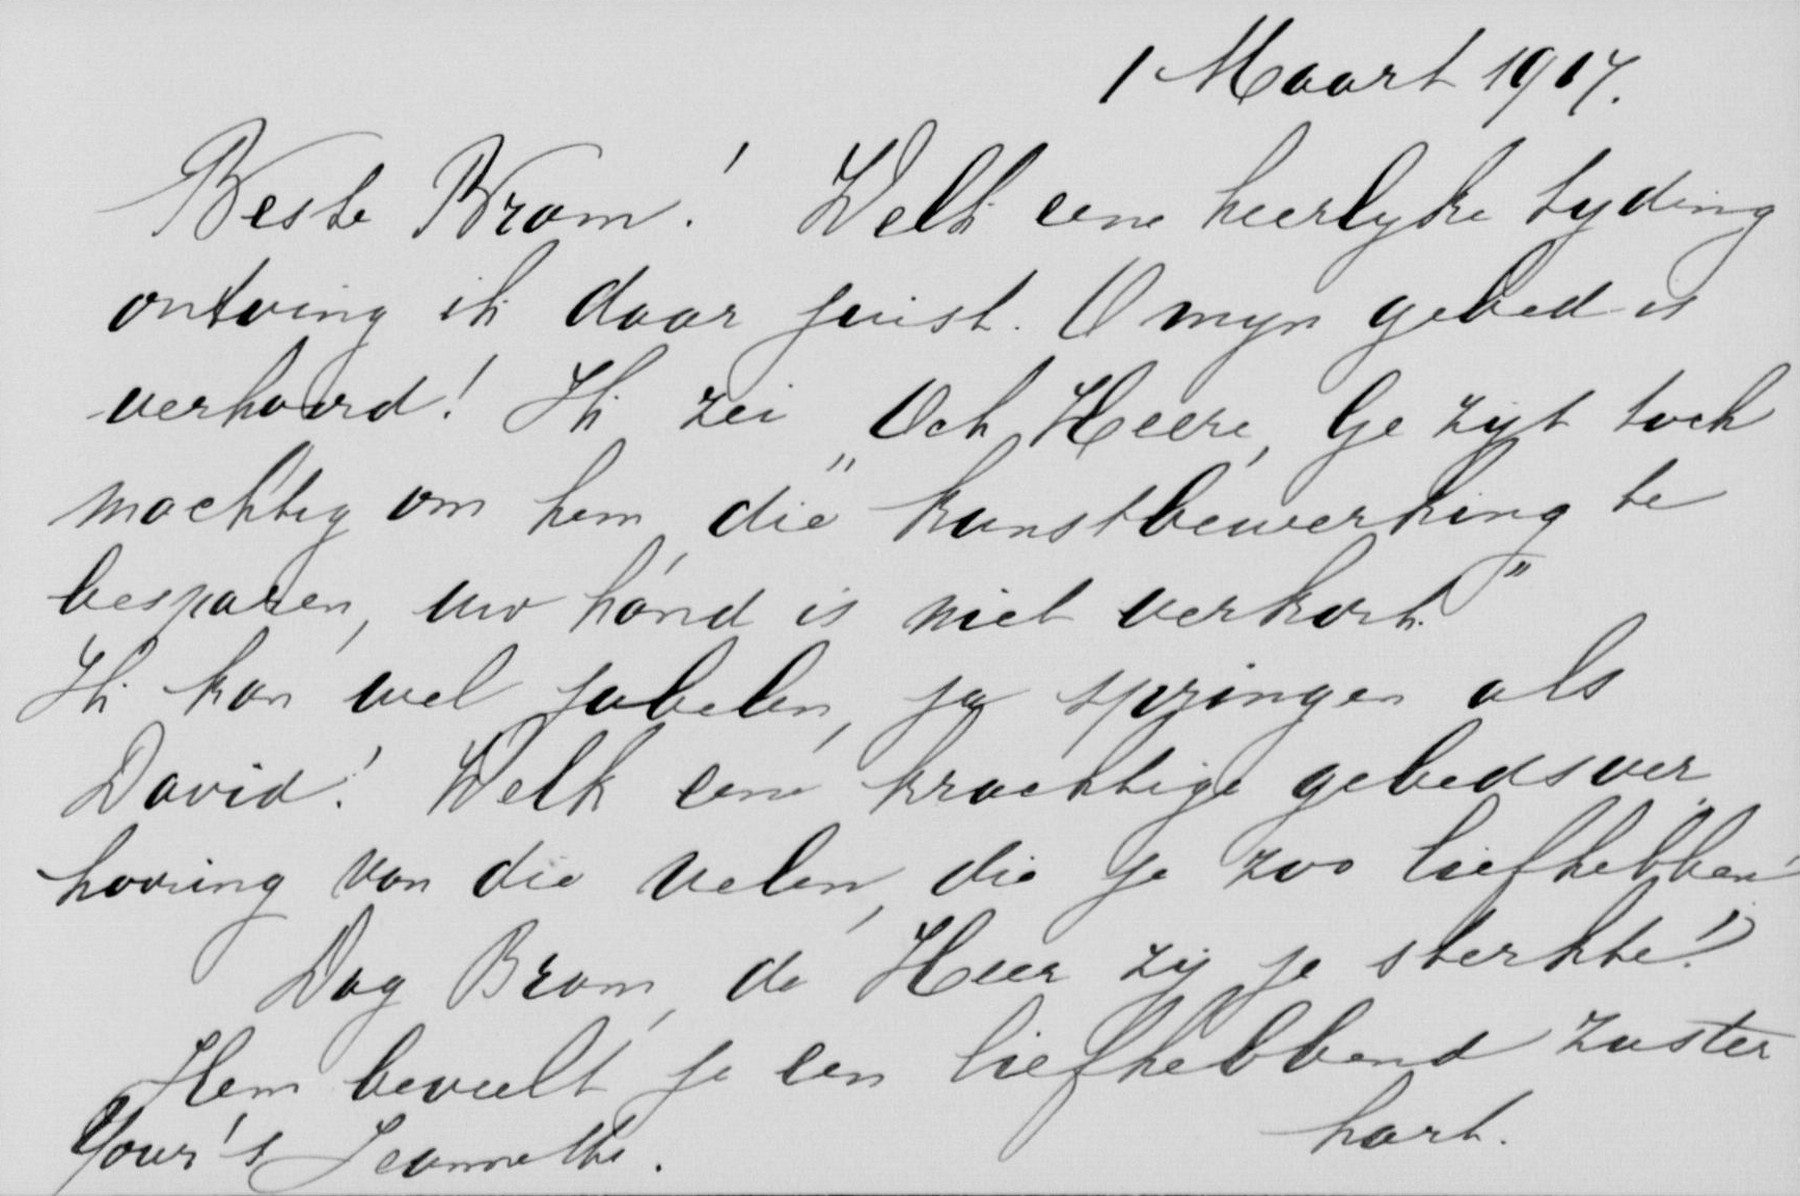 1 Maart 1917.
Beste Bram! Welk eene heerlyke tyding
ontving ik daar juist. O myn gebed is
verhoord! Ik zei „Och Heere, Ge zijt toch
machtig om hem die kunstbewerking te
besparen, uw hand is niet verkort."
Ik kan wel jubelen, ja springen als
David! Welk eene krachtige gebedsver
hooring van die velen, die je zoo liefhebben!
Dag Bram, de Heer zij je sterkte!
Hem beveelt je een liefhebbend zuster
hart.
Your's Jeannette.